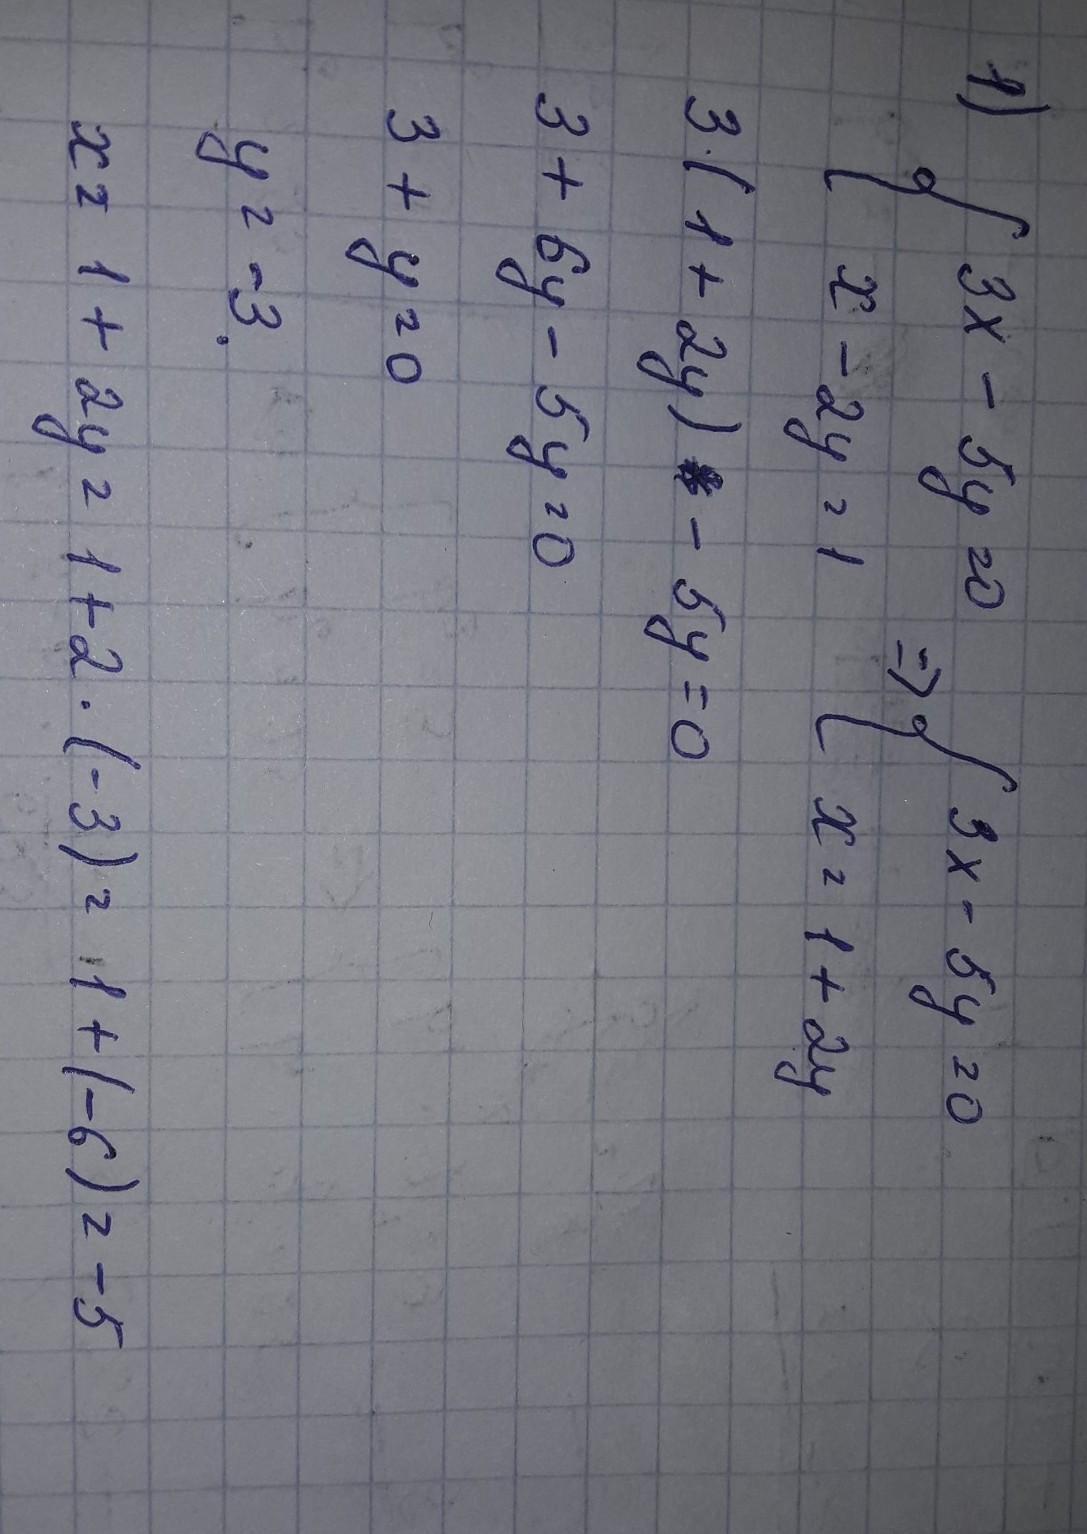 1) { 3x - 5y = 0 => { 3x - 5y = 0
x - 2y = 1 x = 1 + 2y
3·(1 + 2y) - 5y = 0
3 + 6y - 5y = 0
3 + y = 0
y = -3.
x = 1 + 2y = 1 + 2·(-3) = 1 + (-6) = -5